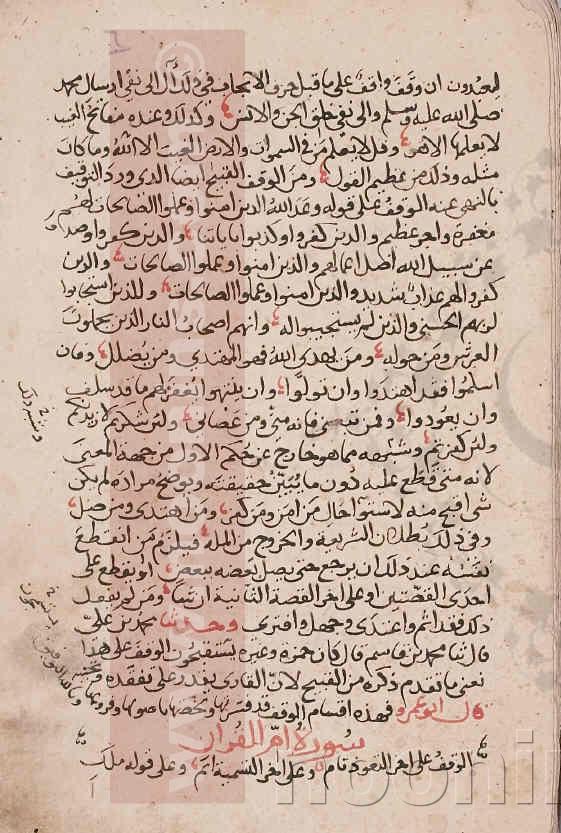 ليعبدون ان وقف واقف على ما قبل حرف الايجاب في ذلك آل الى نفي ارسال محمد
صلى الله عليه وسلم والى نفي خلق الجن والانس وكذلك وعنده مفاتح الغيب
لا يعلمها الا هو وقل لا يعلم من في السموات والارض الغيب الا الله وما كان
مثله وذلك من عظيم القول ومن الوقف القبيح ايضا الذي ورد التوقيف
بالنهي عنه الوقف على قوله وعد الله الذين امنوا وعملوا الصالحات لهم
مغفرة واجر عظيم والذين كفروا وكذبوا باياتنا والذين كفروا وصدوا
عن سبيل الله اضل اعمالهم والذين امنوا وعملوا الصالحات والذين
كفروا لهم عذاب شديد والذين امنوا وعملوا الصالحات وللذين استجابوا
لربهم الحسنى والذين لم يستجيبوا له وانهم اصحاب النار الذين يحملون
العرش ومن حوله ومن يهدى الله فهو المهتدي ومن يضلل وفان
اسلموا فقد اهتدوا وان تولوا وان ينتهوا يغفر لهم ما قد سلف
وان يعودوا وفمن تبعني فانه مني ومن عصاني ولئن شكرتم لازيدنكم
ولئن كفرتم وشبهه مما هو خارج عن حكم الاول من جهة المعنى
لانه متى قطع عليه دون ما يبين حقيقته ويوضح مراده لم يكن
شي اقبح منه لاستوا حال من امن ومن كفر ومن اهتدى ومن ضل
وفي ذلك بطلان الشريعة والخروج من الملة فيلزم من انقطع
نفسه عند ذلك ان يرجع حتى يصل بعضه ببعض او يقطع على
احدى القصتين او على اخر القصة الثانية ان شا ومن لم يفعل
ذلك فقد اثم واعتدى وجهل وافترى وحدثنا محمد بن علي
قال نا محمد بن قاسم قال كان حمزة وغيره يستقبحون الوقف على هذا
نعني ما تقدم ذكره من القبيح لان القارئ يقدر على تفقده
قال ابو عمرو فهذه اقسام الوقف قد
سورة ام القران
الوقف على اخر التعوذ تام وعلى اخر التسمية اتم وعلى قوله ملك